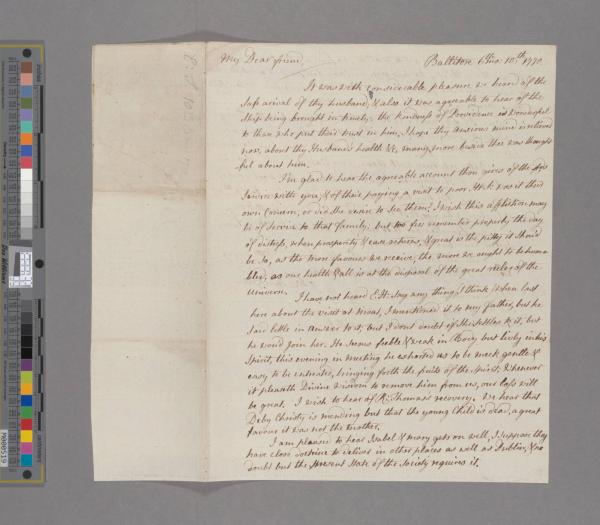 My Dear friend, Ballitore 6th mo. 10th 1770
It was with considerable pleasure we heard of the
safe arival of thy husband, & also it was agreeable to hear of the
Ships being brought in timely; the kindness of Providence is wonderful
to them who put their trust in him, I hope thy anxious mind is relieved
now, about thy Husbands health &c, many more beside thee was thought
ful about him.
I'm glad to hear the agreeable account thou gives of the
service with you, & of their paying a visit to poor was it their
own Concern, or did she desire to see them? I wish this affliction may
be of service to that family; but too few remember properly the day
of distress, when prosperity & ease returns, & great is the pitty it should
be so, as the more favours we receive, the more we ought to be hum
bled, as our health & all is at the disposal of the great Ruler of the
Universe.
I have not heard E. H. say any thing I think when last
here about the visit at I mentioned it to my father, but he
said little in answer to it, but I dont doubt if she settles to it, but
he would join her. He seems feeble & weak in Body but lively in his
Spirit, this evening in meeting he exhorted us to be meek gentle &
easy to be entreated, bringing forth the fruits of the Spirit; Whenever
it pleaseth Divine Wisdom to remove him from us, our loss will
be great. I wish to hear of R: Thomas's recovery. We hear that
Deby Christy is mending but that the young Child is dead, a great
favour it was not the Mother.
I am pleased to hear Isabel & Mary gets on well, I suppose they
have close doctrine to deliver in other places as well as Dublin, & no
doubt but the present State of the Society requires it.
M000519